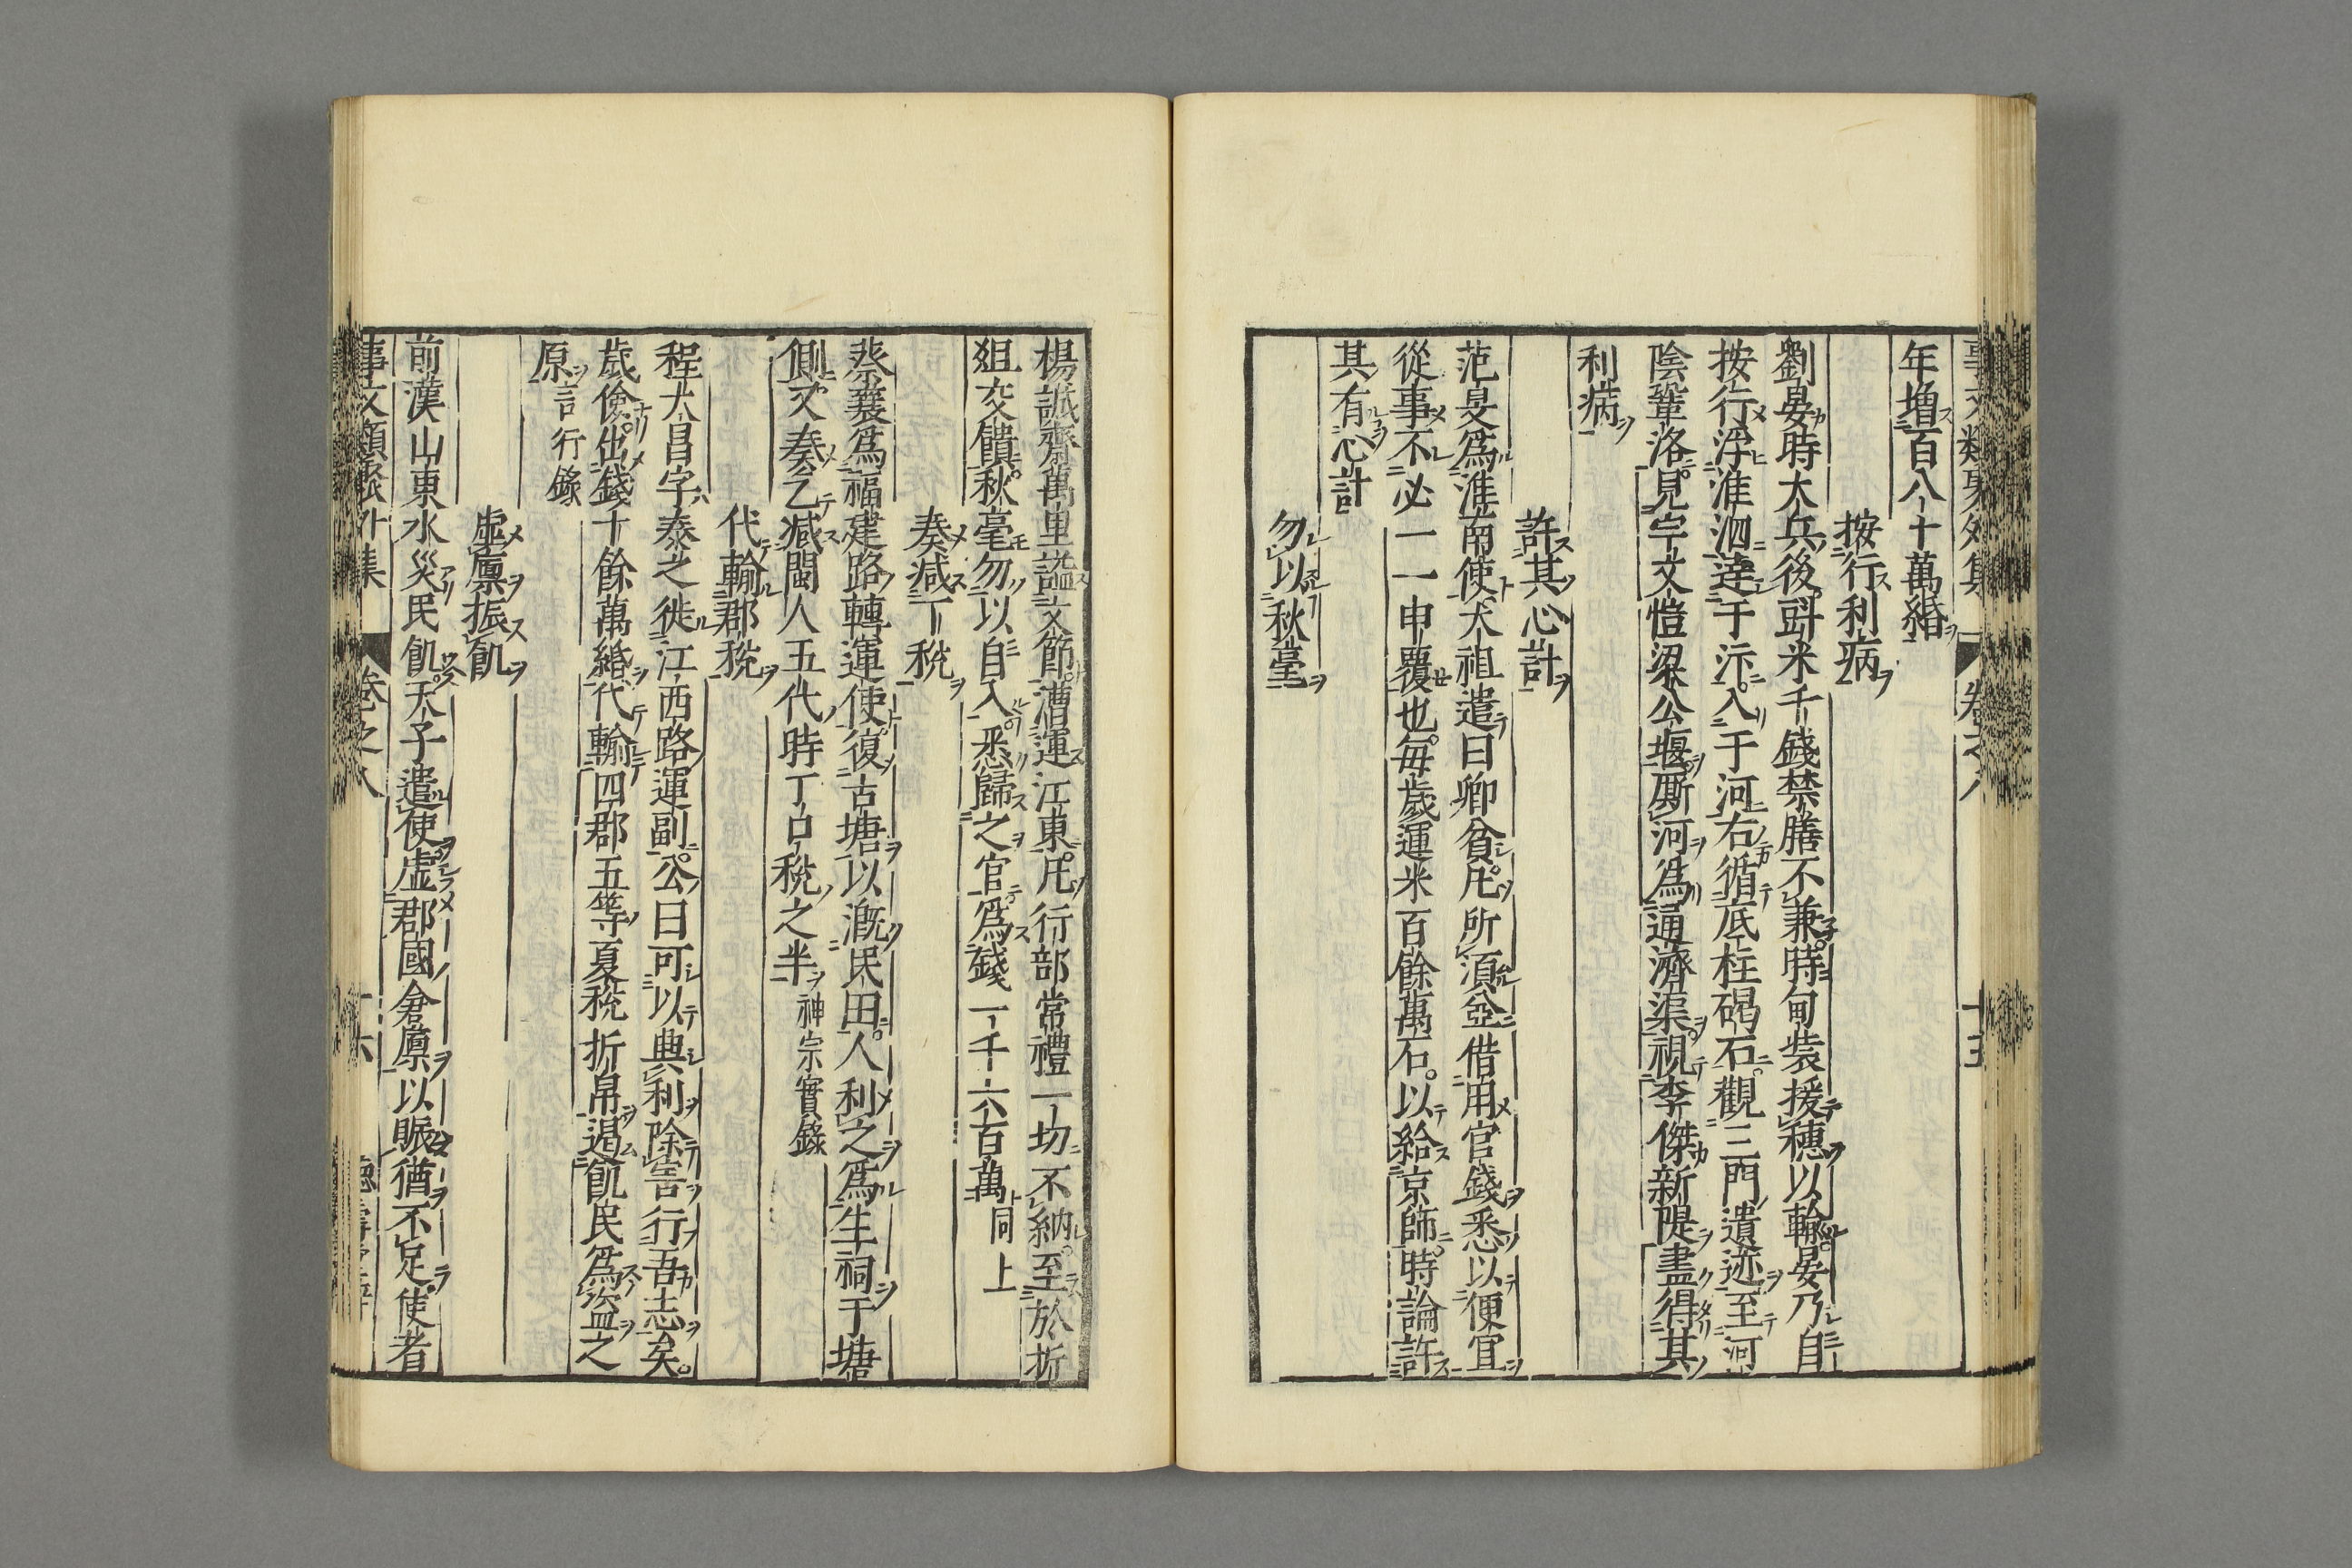 事文類聚外集 卷之八 十五
年增百八十萬緡
按行利病
劉晏時大兵後斗米千錢禁膳不兼時甸裝援穗以輸晏乃自
按行浮淮泗達于汴入于河右循底柱硤石觀三門遺迹至河
陰鞏洛見宇文愷梁公堰厮河為通濟渠視李傑新隄盡得其
利病
許其心計
范旻為淮南使太祖遣曰卿貧凡所須並借用官錢悉以便宜
從事不必一一申覆也每歲運米百餘萬石以給京師時論許
其有心計
勿以秋毫
楊誠齋萬里謚文節漕運江東凡行部常禮一切不納至於折
俎交饋秋毫勿以自入悉歸之官為錢一千六百萬同上
奏減丁稅
蔡襄為福建路轉運使復古塘以漑民田人利之為生祠于塘
側又奏乞減閩人五代時丁口稅之半神宗實錄
代輸郡稅
程大昌字泰之徙江西路運副公曰可以興利除害行吾志矣
歲儉出錢十餘萬緡代輸四郡五等夏稅折帛遏飢民為盜之
原言行錄
虛廩振飢
前漢山東水災民飢天子遣使虛郡國倉廩以賑猶不足使者
事文類聚外集 卷之八 十六